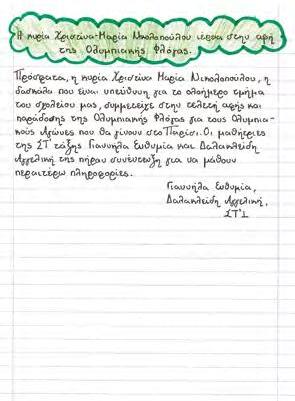 Η κυρία Χριστίνα-Μαρία Νικολοπούλου ιέρεια στην αφή
της Ολυμπιακής Φλόγας.
Πρόσφατα, η κυρία Χριστίνα Μαρία Νικολοπούλου, η
δασκάλα που είναι υπεύθυνη για το ολοήμερο τμήμα
του σχολείου μας, συμμετείχε στην τελετή αφής και
παράδοσης της Ολυμπιακής Φλόγας για τους Ολυμπια-
κούς Αγώνες που θα γίνουν στο Παρίσι. Οι μαθήτριες
της ΣΤ' τάξης Γιαννήλα Ευθυμία και Δαλακλείδη
Αγγελική της πήραν συνέντευξη για να μάθουν
περαιτέρω πληροφορίες.
Γιαννήλα Ευθυμία,
Δαλακλείδη Αγγελική,
ΣΤ'1